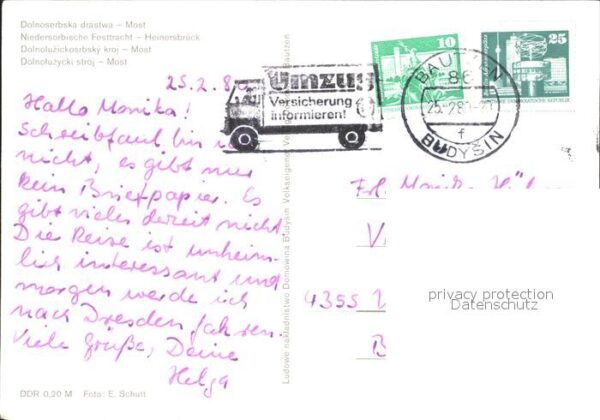 Dolnoserbska drastwa – Most
Niedersorbische Festtracht – Heinersbrück
Dolnołužickosrbský kroj – Most
Dolnołużycki strój – Most
25.2.8
Hallo Monika!
Schreibfaul bin ich
nicht, es gibt nur
kein Briefpapier. Es
gibt vieles derzeit nicht
Die Reise ist unheim-
lich interessant und
morgen werde ich
nach Dresden fahren.
Viele Grüße, Deine
Helga
DDR 0,20 M Foto: E. Schutt
Ludowe nakładnistwo Domowina Budyšin Volkseigener Bautzen
Umzug
Versicherung
informieren!
10
25
BAUTZEN
86
25.-2.80-20
f
BUDYŠIN
DEUTSCHE DEMOKRATISCHE REPUBLIK
Frl.
V
4355
B
privacy protection
Datenschutz